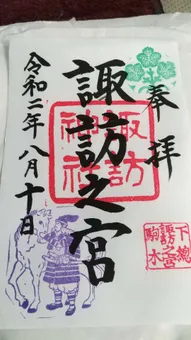 奉拝
諏訪之宮
諏訪神社
令和二年八月十日
下總
諏訪之宮
駒木